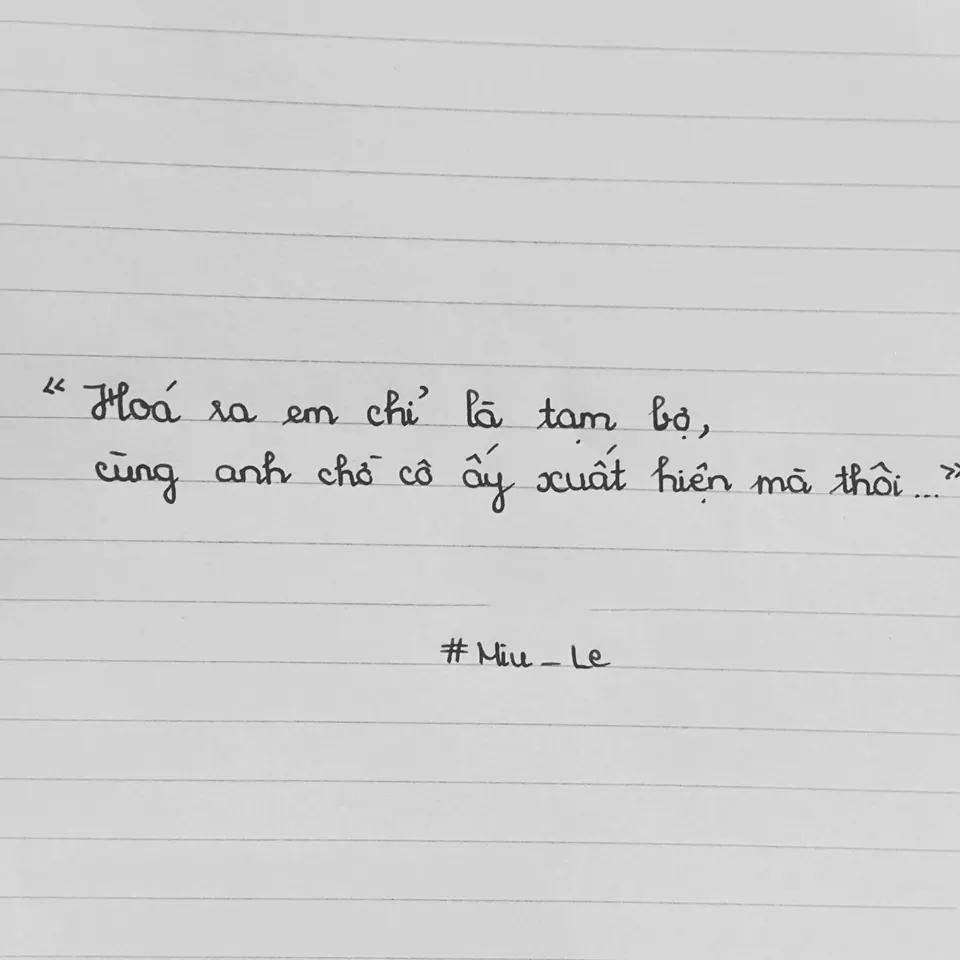 “Hoá ra em chỉ là tạm bợ,
cùng anh chờ cô ấy xuất hiện mà thôi...”
#Miu_Le